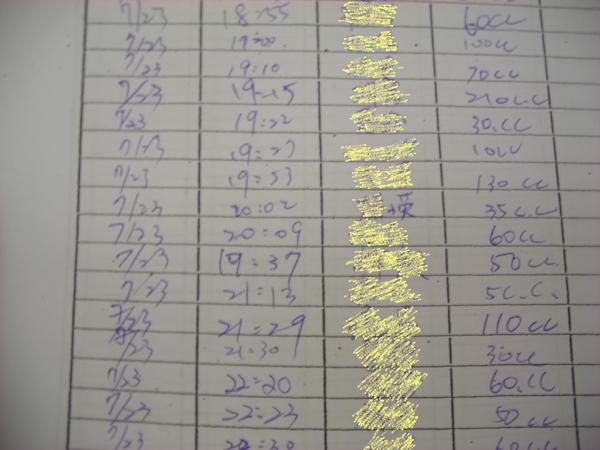 7/23 18:55 60cc
7/23 19:00 100cc
7/23 19:10 70cc
7/23 19:15 210c.c
7/23 19:22 30.cc
7/23 19:27 10cc
7/23 19:53 130cc
7/23 20:02 35c.c
7/23 20:09 60cc
7/23 19:37 50cc
7/23 21:13 5c.c.
7/23 21:29 110cc
7/23 21:30 30cc
7/23 22:20 60.cc
7/23 22:23 50cc
7/23 22:30 60cc